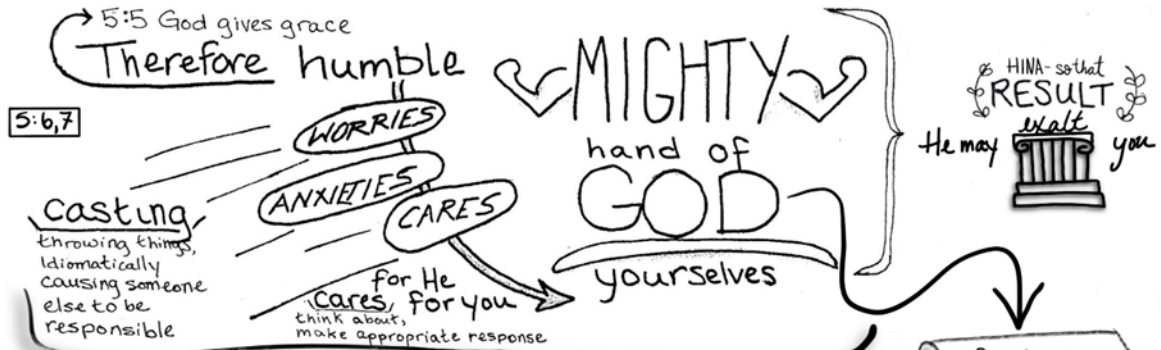 5:5 God gives grace
Therefore humble
5:6,7
WORRIES
ANXIETIES
CARES
casting
throwing things,
Idiomatically
causing someone
else to be
responsible
for He
cares for you
think about,
make appropriate response
MIGHTY
hand of
GOD
yourselves
HINA-so that
RESULT
He may exalt you